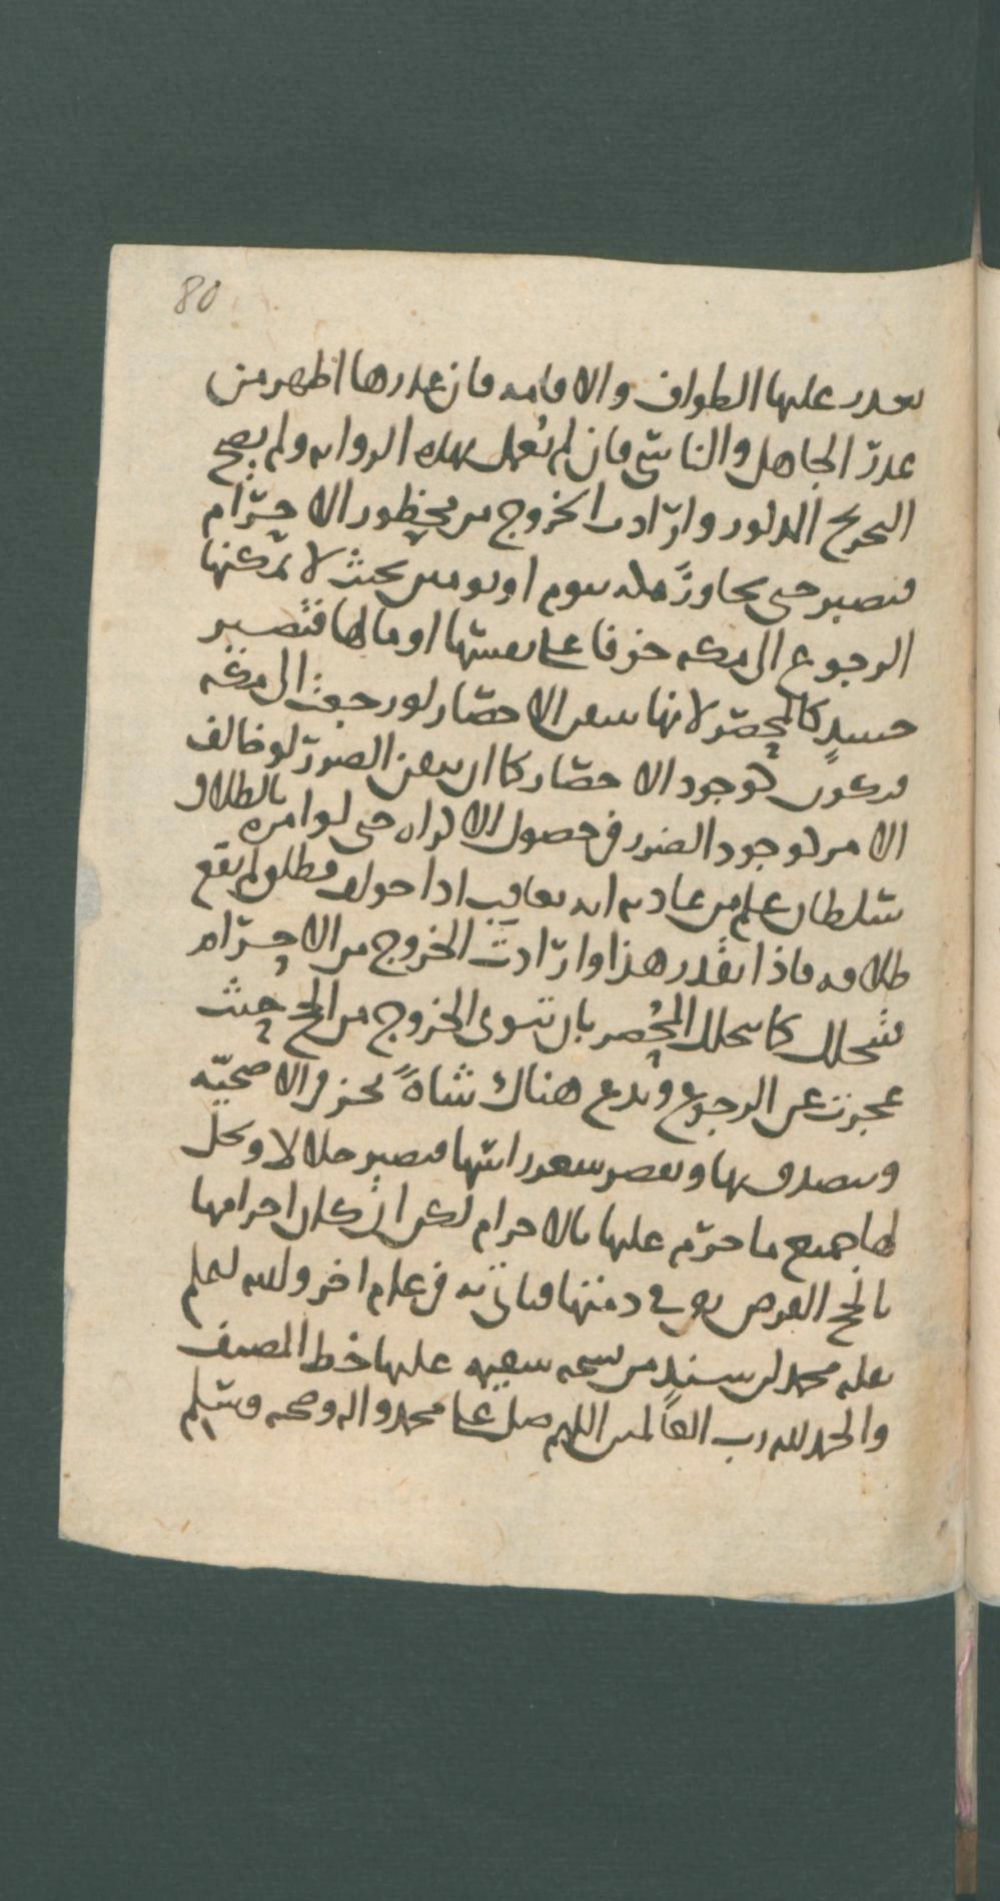 80
تعذر عليها الطواف والاقامه فان عذرها اظهر من
عذر الجاهل والناسي فان لم نعمل بهذه الروايه ولم يصح
التخريج المذكور وارادت الخروج من محظور الاحرام
فتصبر حتى تجاوز مكه بيوم او يومين بحيث لا يمكنها
الرجوع الى مكه خوفا على نفسها او مالها فتصير
حينئذ كالمحصر لانها تتيقن الاحصار لو رجعت الى مكه
فيكون كوجود الاحصار كما ان تيقن الضرر لو خالف
الامر كوجود الضرر في حصول الاكراه حتى لو امره بالطلاق
سلطان علم من عادته انه يعاقب اذا خولف فطلق لم يقع
طلاقه فاذا تقدر هذا وارادت الخروج من الاحرام
فتتحلل كما يتحلل المحصر بان تنوي الخروج من الحج حيث
عجزت عن الرجوع وتذبح هناك شاة تجزي في الاضحيه
وتتصدق بها وتقصر شعر راسها فتصير حلالا ويحل
لها جميع ما حرم عليها بالاحرام لكن ان كان احرامها
بالحج الفرض بقي في ذمتها فتاتي به في عام اخر والله اعلم
نقله محمد بن سند من نسخه نقيه عليها خط المصنف
والحمد لله رب العالمين اللهم صل على محمد واله وصحبه وسلم